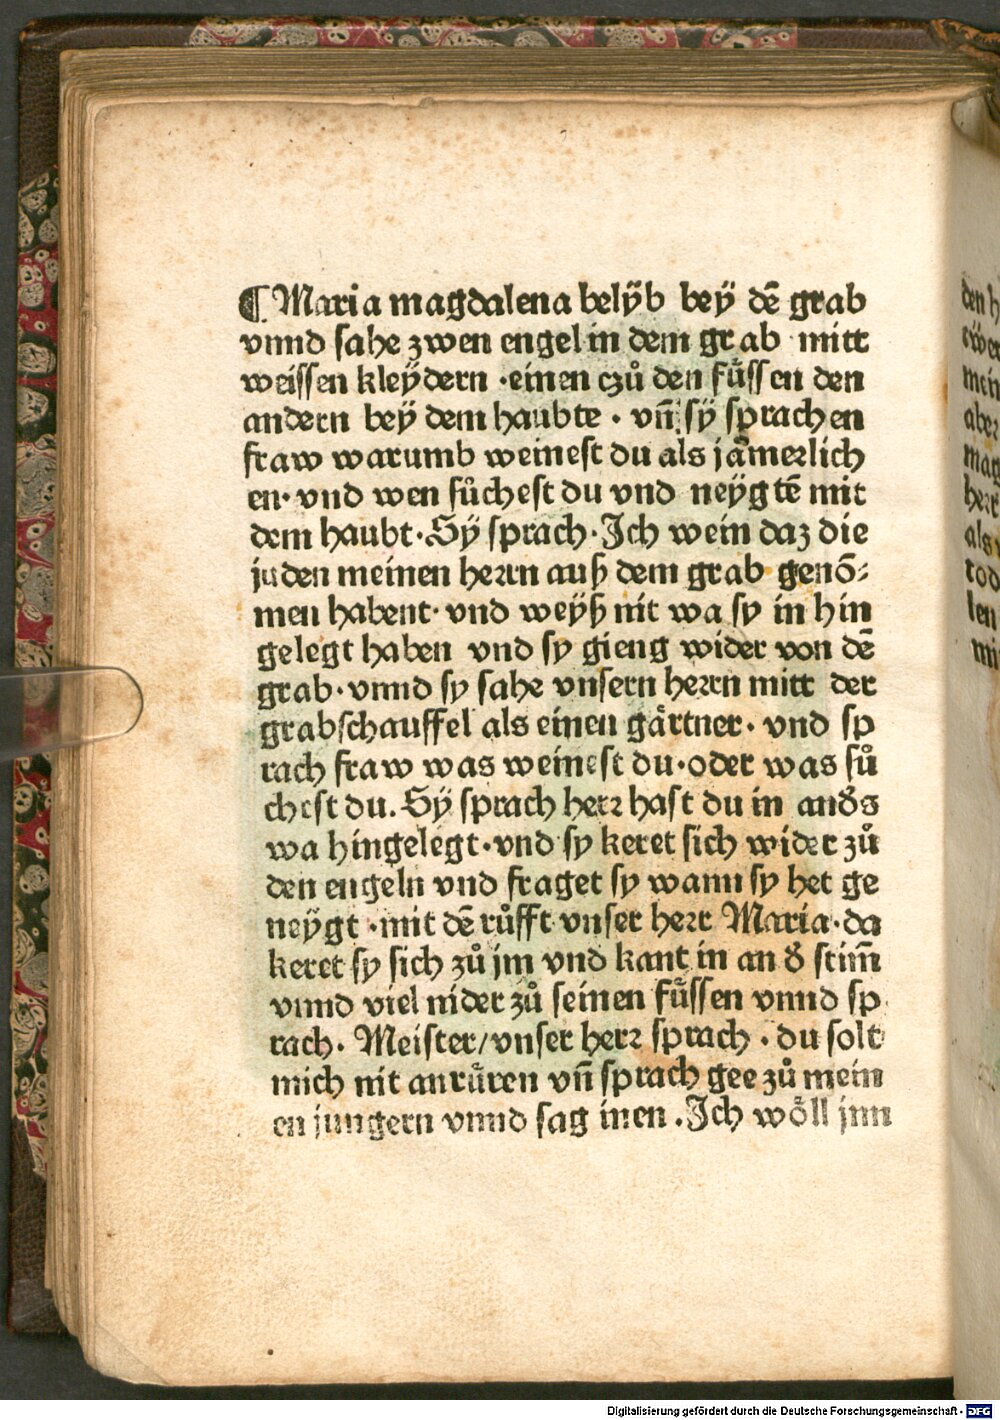 ¶ Maria magdalena belÿb beÿ dē grab
vnnd sahe zwen engel in dem grab mitt
weissen kleÿdern ·einen czů den fuͤssen den
andern beÿ dem haubte · vn̄ sÿ sprachen
fraw warumb weinest du als jaͤmerlich
en· vnd wen sůchest du vnd neÿgtē mit
dem haubt·Sÿ sprach·Ich wein daz die
juden meinen herrn auß dem grab genō⸗
men habent· vnd weÿß nit wa sy in hin
gelegt haben vnd sy gieng wider von dē
grab·vnnd sy sahe vnsern herrn mitt der
grabschauffel als einen gaͤrtner· vnd sp
rach fraw was weinest du·oder was sů
chest du.Sÿ sprach herr hast du in anđs
wa hingelegt·vnd sy keret sich wider zů
den engeln vnd fraget sy wann sy het ge
neÿgt ·mit dē růfft vnser herr Maria·da
keret sy sich zů jm vnd kant in an đ stim̄
vnnd viel nider zů seinen fuͤssen vnnd sp
rach· Meister/vnser herr sprach · du solt
mich nit anruͤren vn̄ sprach gee zů mein
en jungern vnnd sag inen .Ich woͤll jnn
den h
mein
aber
mag
herr
als
tod
len
Digitalisierung gefördert durch die Deutsche Forschungsgemeinschaft - DFG